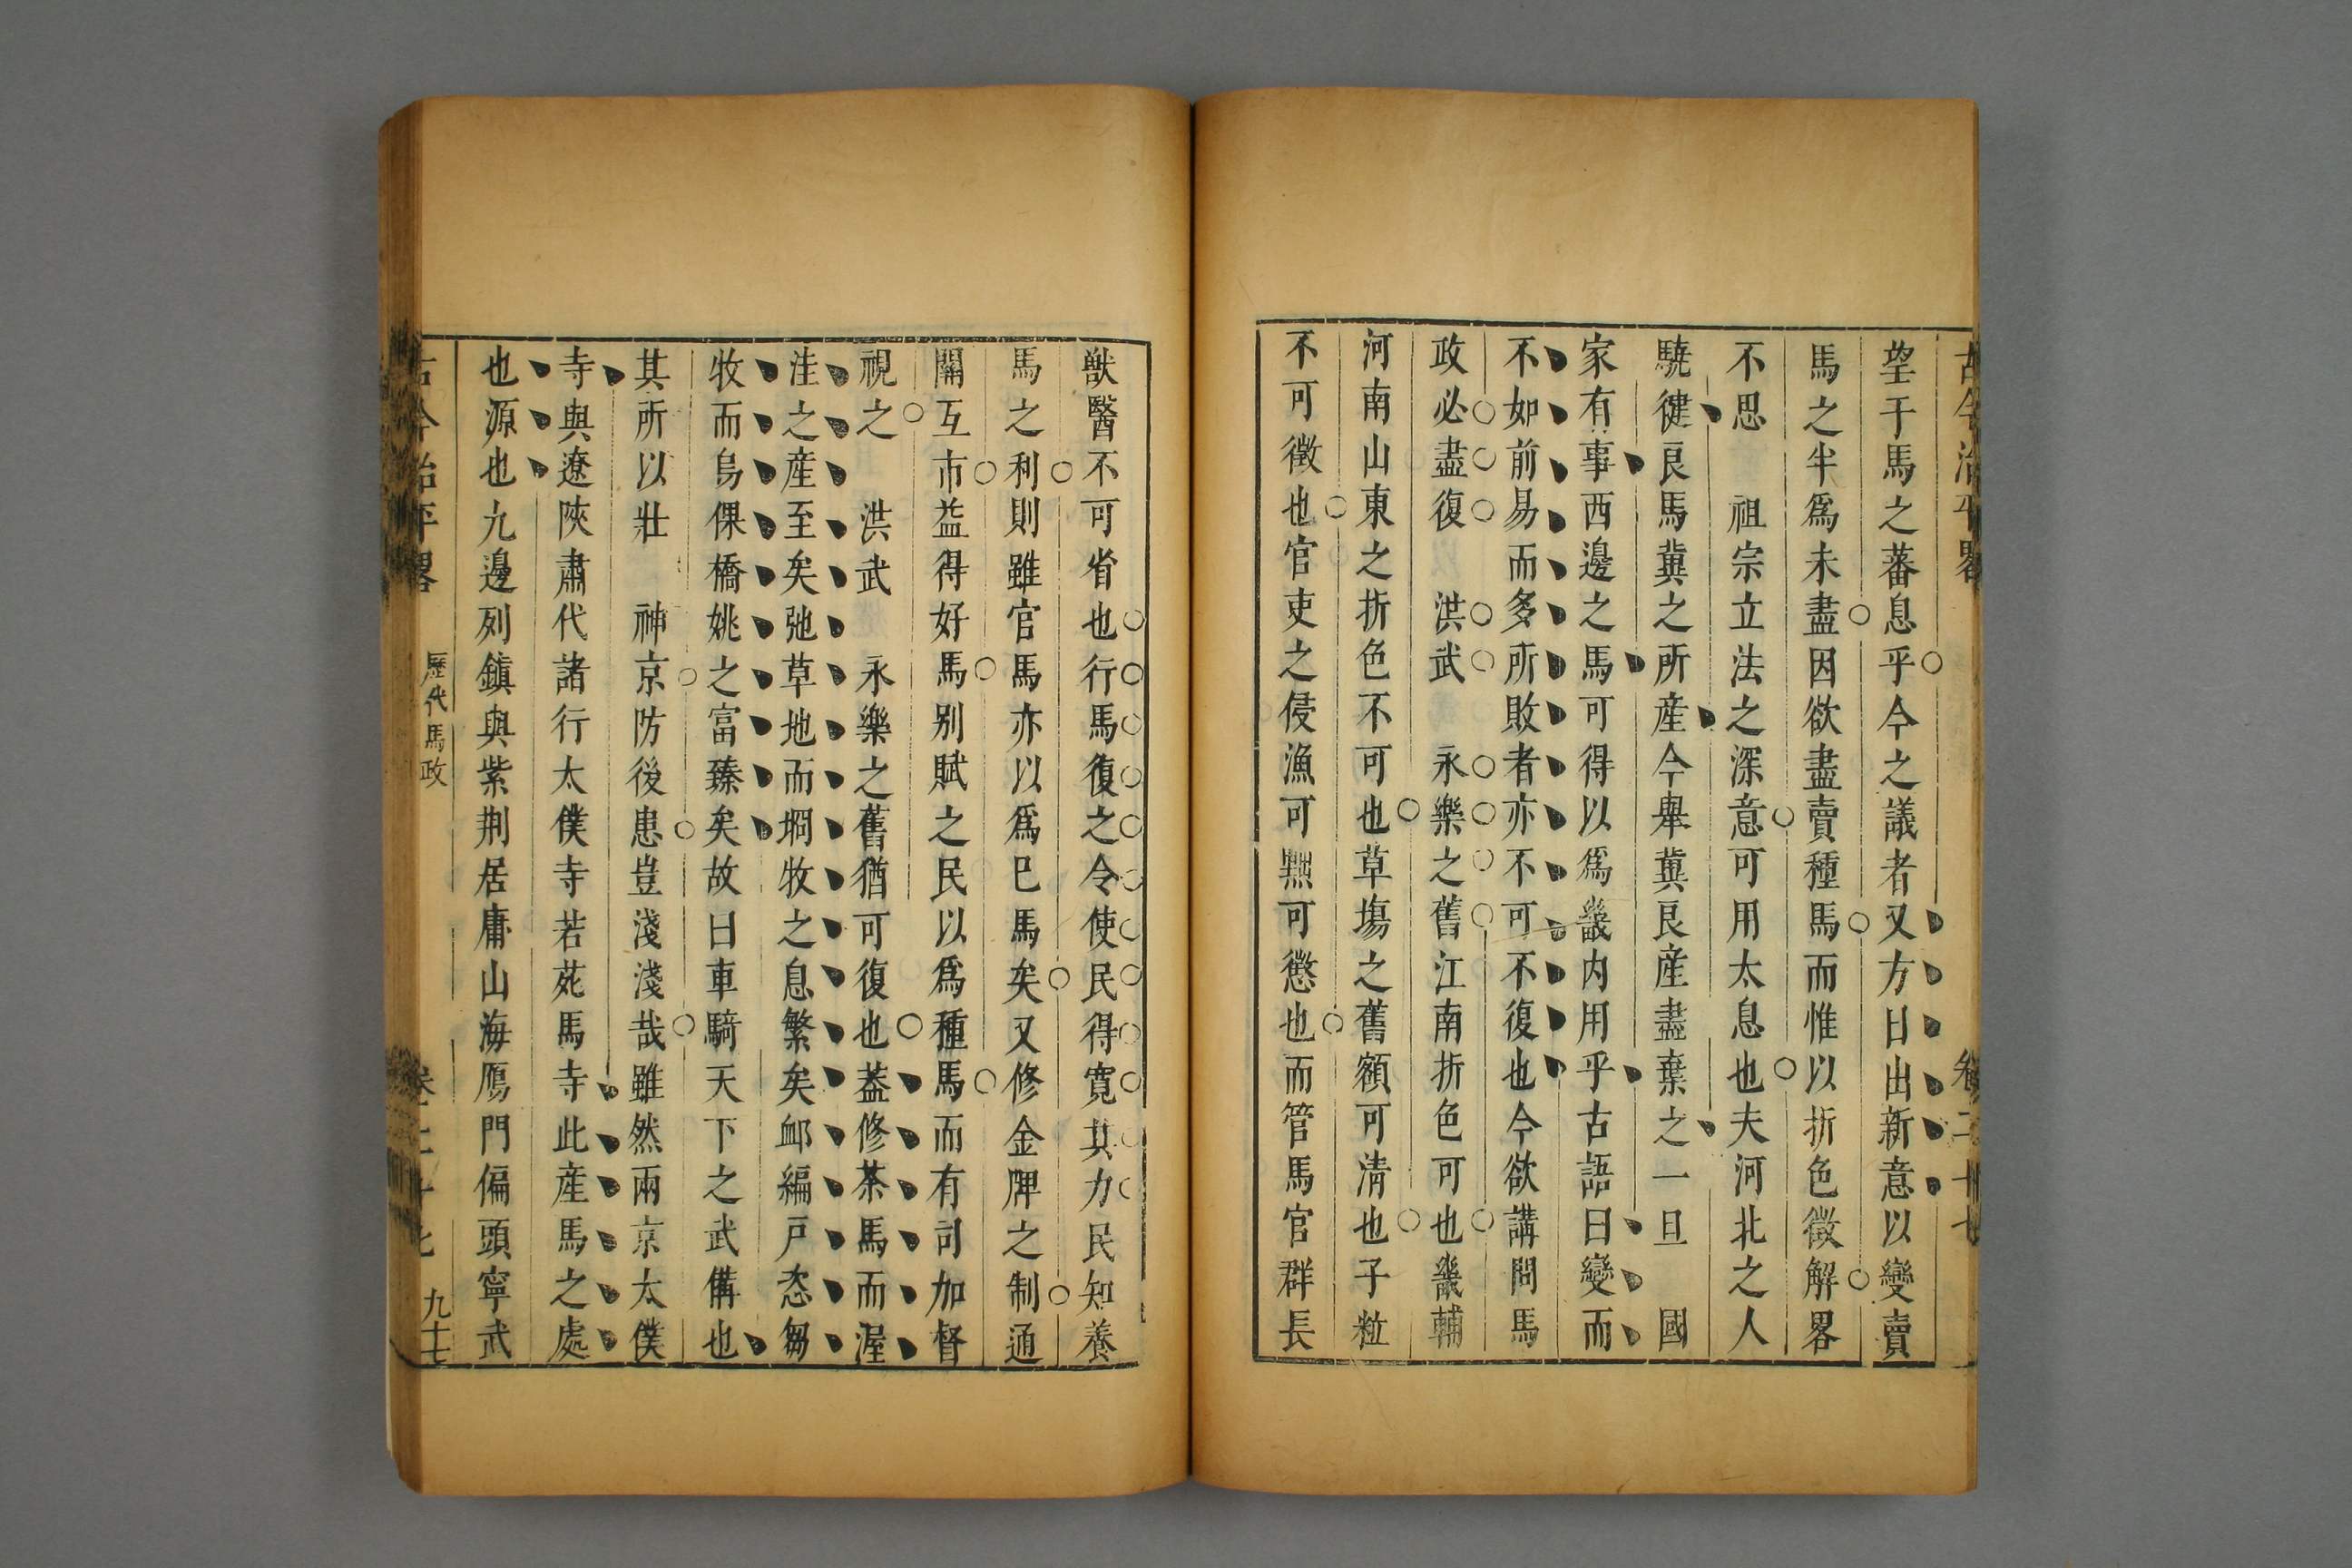 古今治平畧 卷二十七
望于馬之蕃息乎今之議者又方日出新意以變賣
馬之半爲未盡因欲盡賣種馬而惟以折色徵解畧
不思 祖宗立法之深意可用太息也夫河北之人
驍健良馬冀之所産今舉冀良産盡棄之一旦 國
家有事西邊之馬可得以爲畿内用乎古語曰變而
不如前易而多所敗者亦不可不復也今欲講問馬
政必盡復 洪武 永樂之舊江南折色可也畿輔
河南山東之折色不可也草塲之舊額可淸也子粒
不可徵也官吏之侵漁可黜可懲也而管馬官群長
獸醫不可省也行馬復之令使民得寛其力民知養
馬之利則雖官馬亦以爲已馬矣又修金牌之制通
關互市益得好馬别賦之民以爲種馬而有司加督
視之 洪武 永樂之舊猶可復也葢修茶馬而渥
洼之産至矣弛草地而坰牧之息繁矣䘏編戸态芻
牧而烏倮橋姚之富臻矣故曰車騎天下之武備也
其所以壯 神京防後患豈淺淺哉雖然兩京太僕
寺與遼陜肅代諸行太僕寺若苑馬寺此産馬之處
也源也九邊列鎮與紫荆居庸山海鴈門偏頭寧武
古今治平畧 歷代馬政 卷二十七 九十七